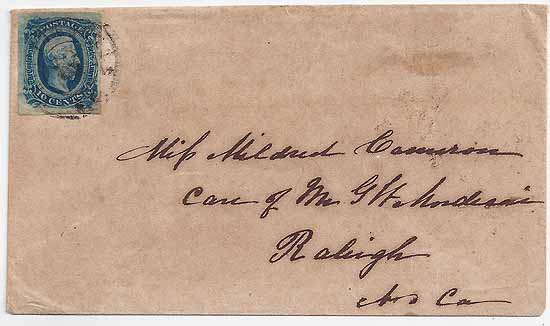 POSTAGE
10 CENTS
Miſs Mildred Cameron
Care of Mr G W Mordecai
Raleigh
No Ca